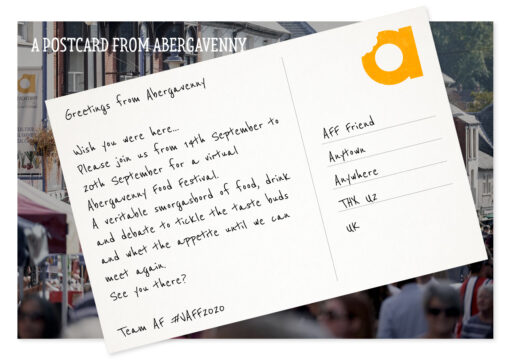 A POSTCARD FROM ABERGAVENNY
Greetings from Abergavenny
Wish you were here...
Please join us from 14th September to
20th September for a virtual
Abergavenny Food Festival.
A veritable smorgasbord of food, drink
and debate to tickle the taste buds
and whet the appetite until we can
meet again.
See you there?
Team AF #VAFF2020
AFF Friend
Anytown
Anywhere
THX UZ
UK